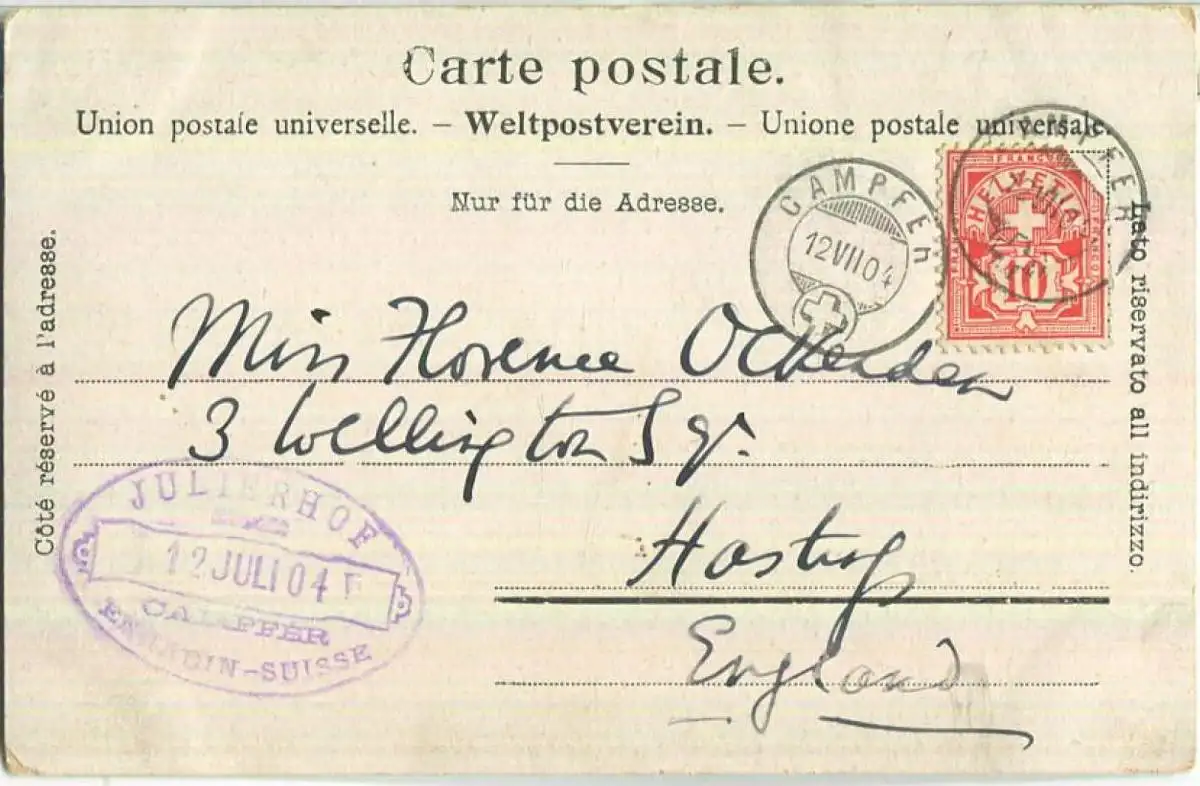 Carte postale.
Union postale universelle. – Weltpostverein. – Unione postale universale.
Nur für die Adresse.
Côté réservé à l'adresse.
Lato riservato all indirizzo.
CAMPFER
12 VII 04
FRANCO
HELVETIA
FRANCO
FRANCO
10
Miss Florence Ockenden
3 Wellington Sqr.
Hastings
England
JULIERHOF
12 JULI 04
CAMPFER
ENGADIN-SUISSE